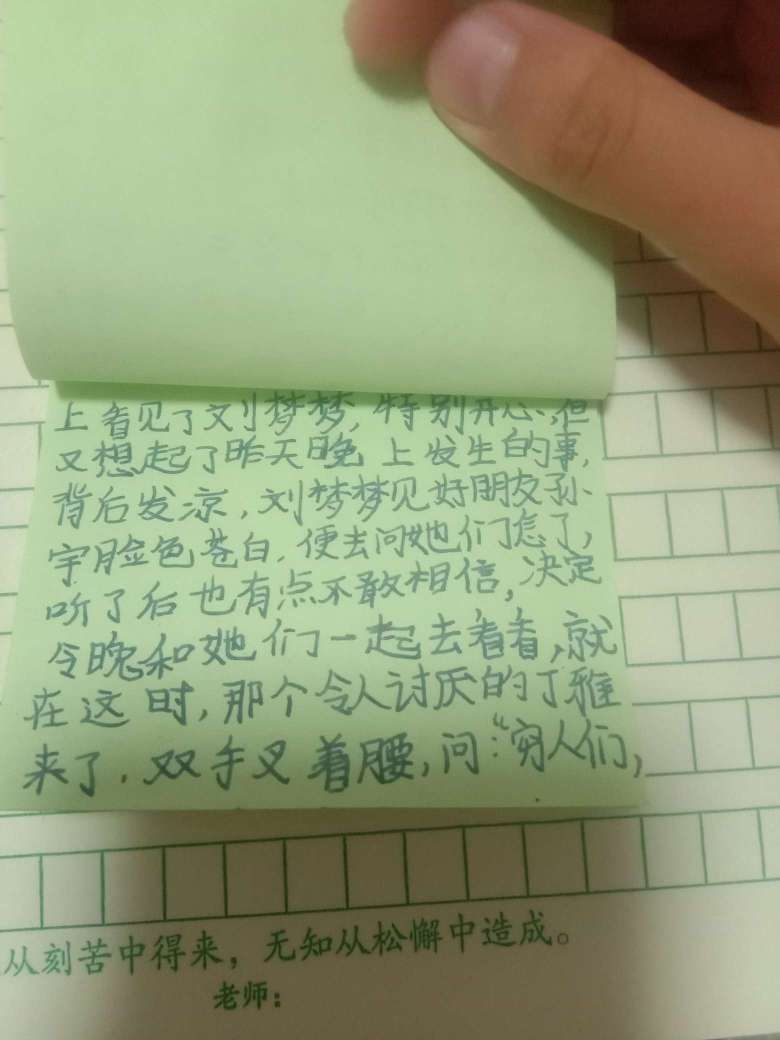 上看见了刘梦梦,特别开心,但
又想起了昨天晚上发生的事,
背后发凉,刘梦梦见好朋友孙
宇脸色苍白,便去问她们怎了,
听了后也有点不敢相信,决定
今晚和她们一起去看看,就
在这时,那个令人讨厌的丁雅
来了,双手叉着腰,问:“穷人们,
从刻苦中得来,无知从松懈中造成。
老师: